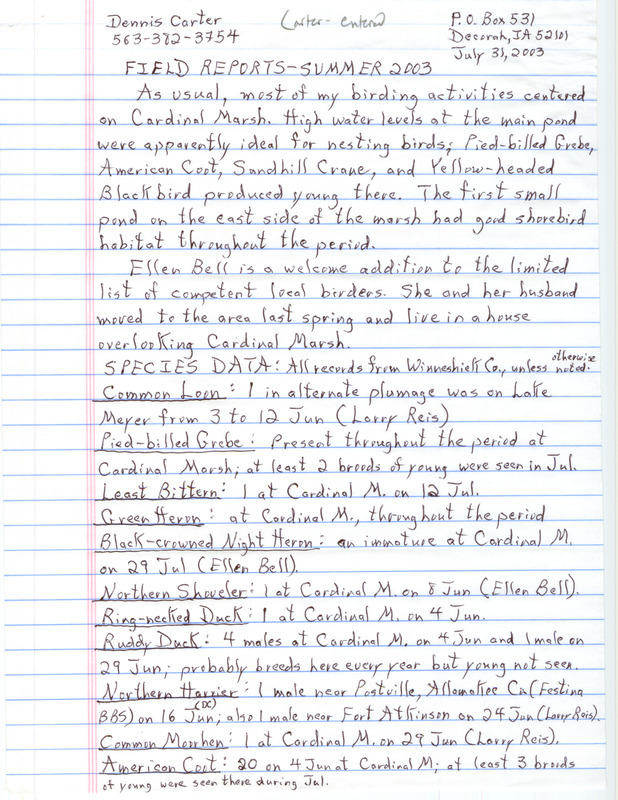 Dennis Carter
563-382-3754
Carter - entered
P.O. Box 531
Decorah, IA 52101
July 31, 2003
FIELD REPORTS-SUMMER 2003
As usual, most of my birding activities centered
on Cardinal Marsh. High water levels at the main pond
were apparently ideal for nesting birds; Pied-billed Grebe,
American Coot, Sandhill Crane, and Yellow-headed
Blackbird produced young there. The first small
pond on the east side of the marsh had good shorebird
habitat throughout the period.
Ellen Bell is a welcome addition to the limited
list of competent local birders. She and her husband
moved to the area last spring and live in a house
overlooking Cardinal Marsh.
SPECIES DATA: All records from Winneshiek Co., unless otherwise noted.
Common Loon: 1 in alternate plumage was on Lake
Meyer from 3 to 12 Jun (Larry Reis)
Pied-billed Grebe: Present throughout the period at
Cardinal Marsh; at least 2 broods of young were seen in Jul.
Least Bittern: 1 at Cardinal M. on 12 Jul.
Green Heron: at Cardinal M., throughout the period
Black-crowned Night Heron: an immature at Cardinal M.
on 29 Jul (Ellen Bell).
Northern Shoveler: 1 at Cardinal M. on 8 Jun (Ellen Bell).
Ring-necked Duck: 1 at Cardinal M. on 4 Jun.
Ruddy Duck: 4 males at Cardinal M. on 4 Jun and 1 male on
29 Jun; probably breeds here every year but young not seen.
Northern Harrier: 1 male near Postville, Allamakee Co. (Festina
BBS) on 16 Jun (DC); also 1 male near Fort Atkinson on 24 Jun (Larry Reis).
Common Moorhen: 1 at Cardinal M. on 29 Jun (Larry Reis).
American Coot: 20 on 4 Jun at Cardinal M; at least 3 broods
of young were seen there during Jul.